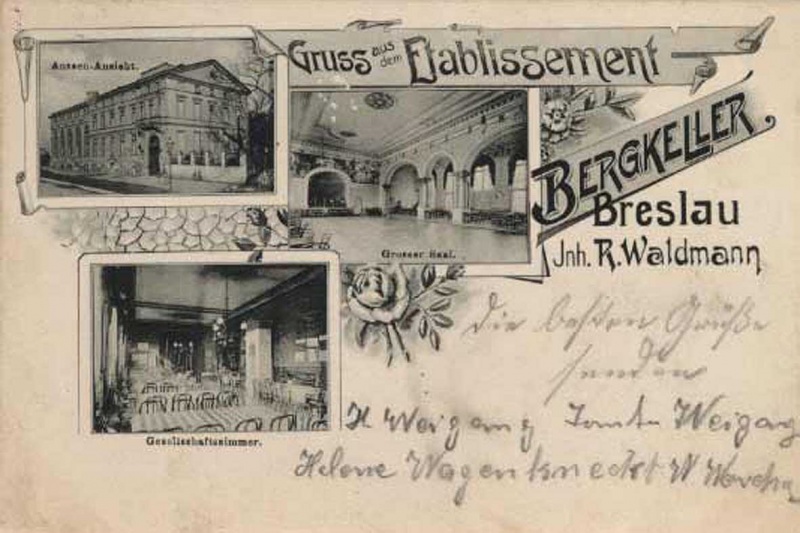 Aussen-Ansicht.
Gruss aus dem Etablissement
BERGKELLER
Breslau
Jnh. R. Waldmann
Grosser Saal.
Gesellschaftszimmer.
Die besten Grüße
senden
H Weigang Weigang
Helene Wagenknecht W